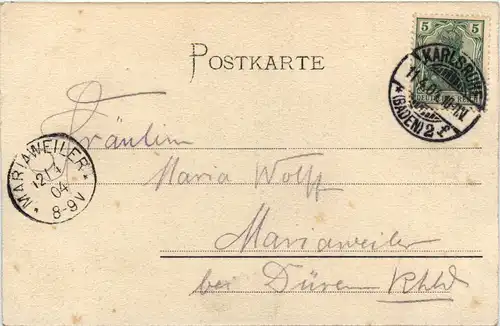 POSTKARTE
5
KARLSRUHE
(BADEN) 2 f
Fräulein
MARIAWEILER
04
8-9V
Maria Wolff
Mariaweiler
bei Düren Rhld